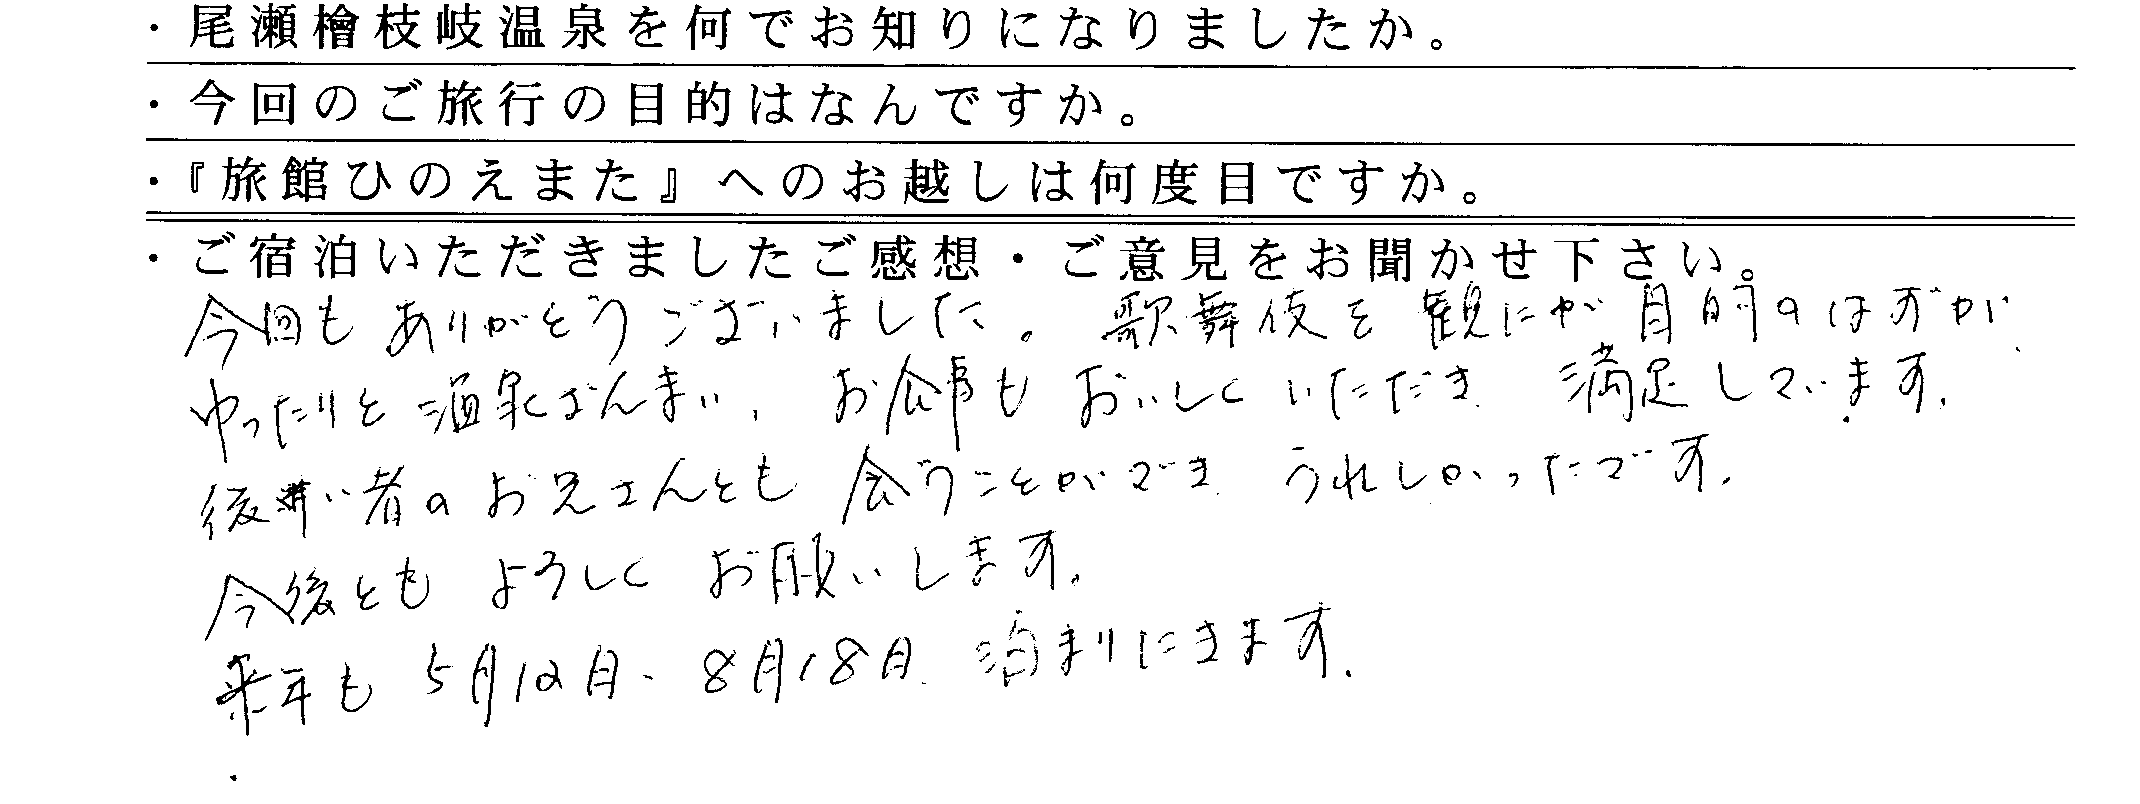 ・尾瀬檜枝岐温泉を何でお知りになりましたか。
・今回のご旅行の目的はなんですか。
・『旅館ひのえまた』へのお越しは何度目ですか。
・ご宿泊いただきましたご感想・ご意見をお聞かせ下さい。
今回もありがとうございました。歌舞伎を観にが目的のはずが、
ゆったりと温泉ざんまい、お食事もおいしくいただき 満足しています。
後 い者のお兄さんとも会うことができ うれしかったです。
今後ともよろしくお願いします。
来年も5月12日、8月18日 泊まりにきます。